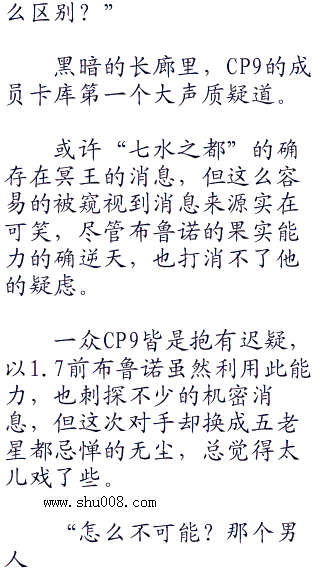 么区别？”
黑暗的长廊里，CP9的成
员卡库第一个大声质疑道。
或许“七水之都”的确
存在冥王的消息，但这么容
易的被窥视到消息来源实在
可笑，尽管布鲁诺的果实能
力的确逆天，也打消不了他
的疑虑。
一众CP9皆是抱有迟疑，
以1.7前布鲁诺虽然利用此能
力，也刺探不少的机密消
息，但这次对手却换成五老
星都忌惮的无尘，总觉得太
儿戏了些。
www.shu008.com
“怎么不可能？那个男
人